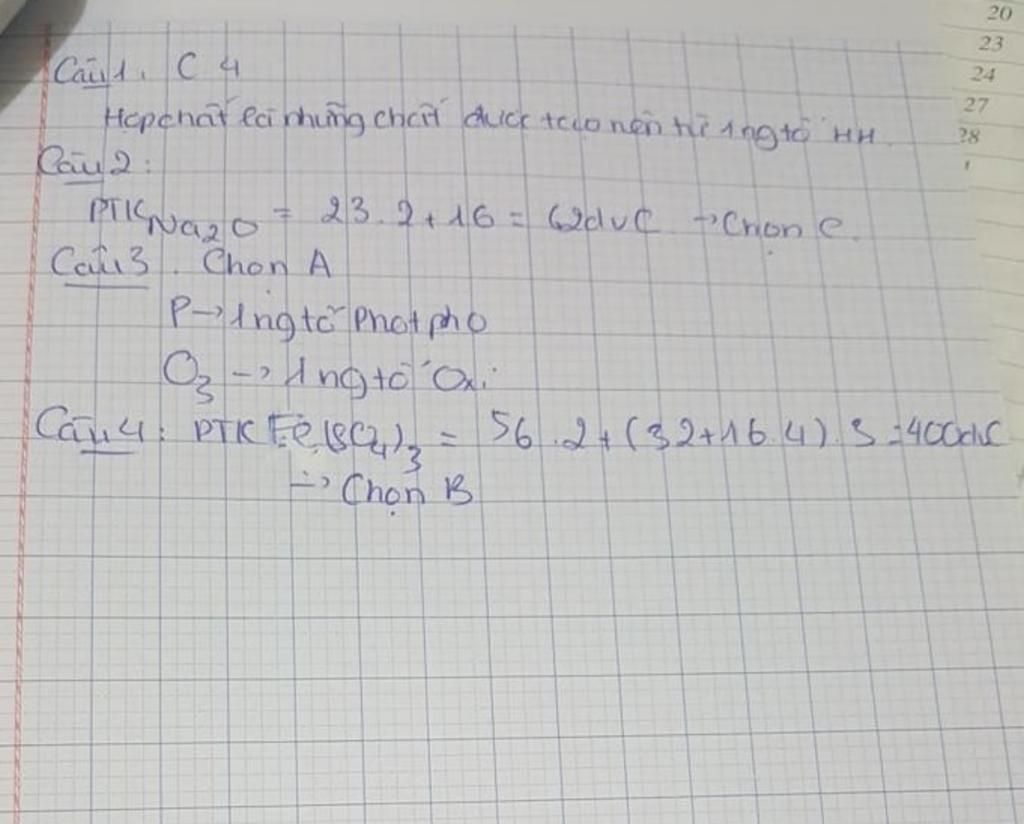 Câu 1. C 4
Hợp chất là những chất được tạo nên từ 1 ngtố HH
Câu 2:
PTK Na2O = 23.2+16 = 62đvC → Chọn C.
Câu 3. Chọn A
P → 1 ngtố Photpho
O3 → 1 ngtố Oxi
Câu 4: PTK Fe2(SO4)3 = 56.2+(32+16.4).3=400đvC
→ Chọn B
20
23
24
27
28